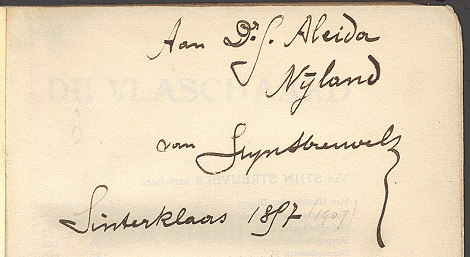 Aan Dr. J. Aleida
Nÿland
van
Stijn Streuvels
Sinterklaas 1897 (1907)
DE VLASCHAARD
Van STIJN STREUVELS